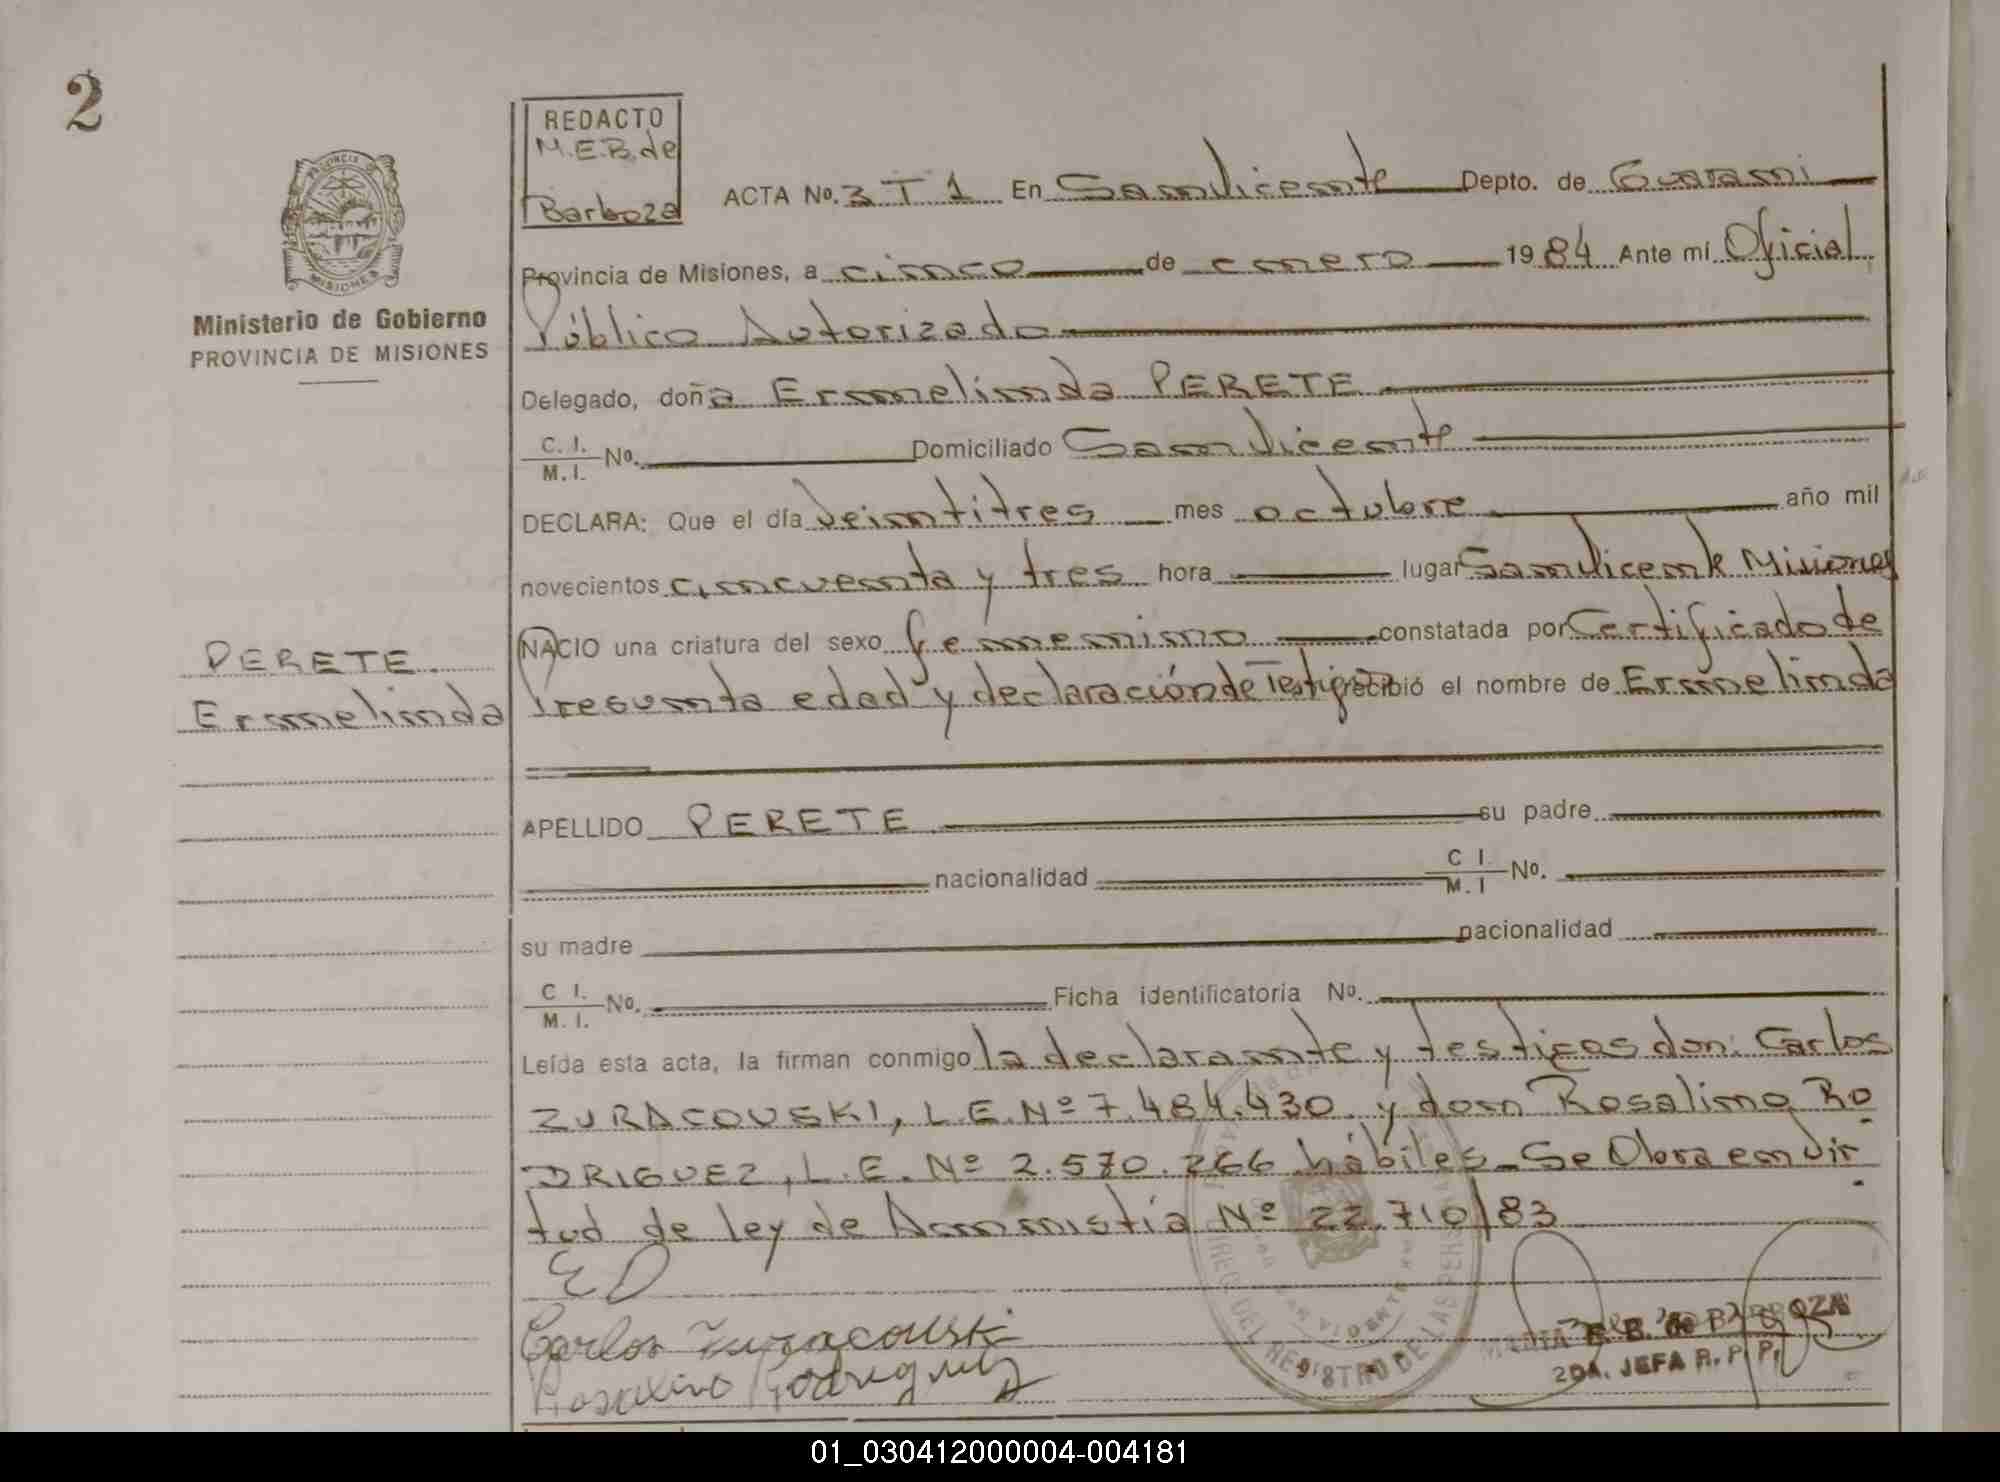 2
REDACTO
M.E.B. de
Barboza
PROVINCIA DE
MISIONES
Ministerio de Gobierno
PROVINCIA DE MISIONES
ACTA No. 3 T 1 En San Vicente Depto. de Guarani
Provincia de Misiones, a cinco de enero 1984 Ante mí Oficial
Público Autorizado
Delegado, doña Ermelinda PERETE
C. I.
M. I. No. Domiciliado San Vicente
DECLARA: Que el día veintitres mes octubre año mil
novecientos cincuenta y tres hora lugar San Vicente Misiones
NACIO una criatura del sexo femenino constatada por Certificado de
Presunta edad y declaración de Testigos recibió el nombre de Ermelinda
PERETE
Ermelinda
APELLIDO PERETE su padre
nacionalidad C I.
M. I No.
su madre nacionalidad
C I.
M. I. No. Ficha identificatoria No.
Leída esta acta, la firman conmigo la declarante y testigos don: Carlos
ZURACOUSKI, L.E. Nº 7.484.430 y don Rosalino RO
DRIGUEZ, L.E. Nº 2.570.266 hábiles - Se Obra en vir
tud de ley de Amnistía Nº 22.710/83
Carlos Zuracouski
Rosalino Rodriguez
REGISTRO DE LAS PERS
SAN VICENTE
MARIA E. B. de BARBOZA
2DA. JEFA R. P. P.
01_030412000004-004181